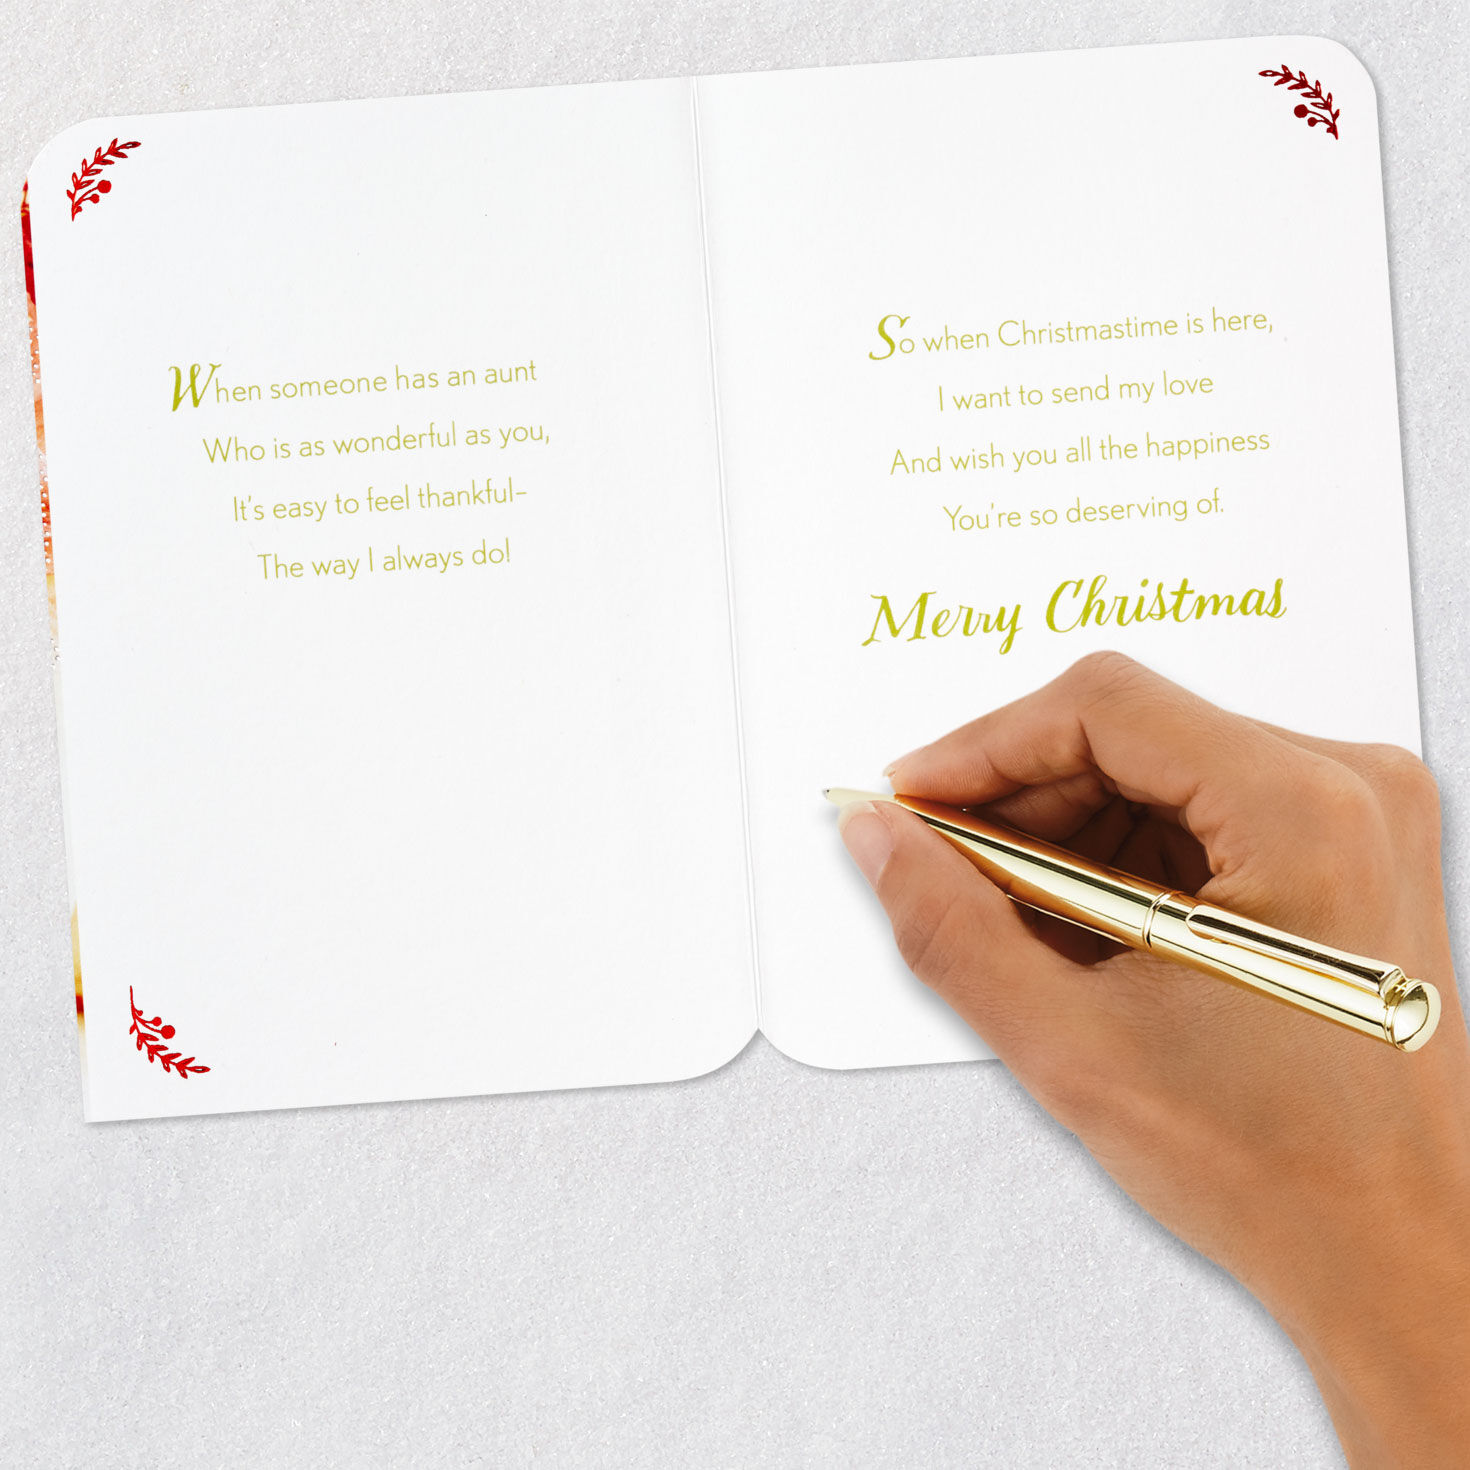 When someone has an aunt
Who is as wonderful as you,
It's easy to feel thankful–
The way I always do!
So when Christmastime is here,
I want to send my love
And wish you all the happiness
You're so deserving of.
Merry Christmas